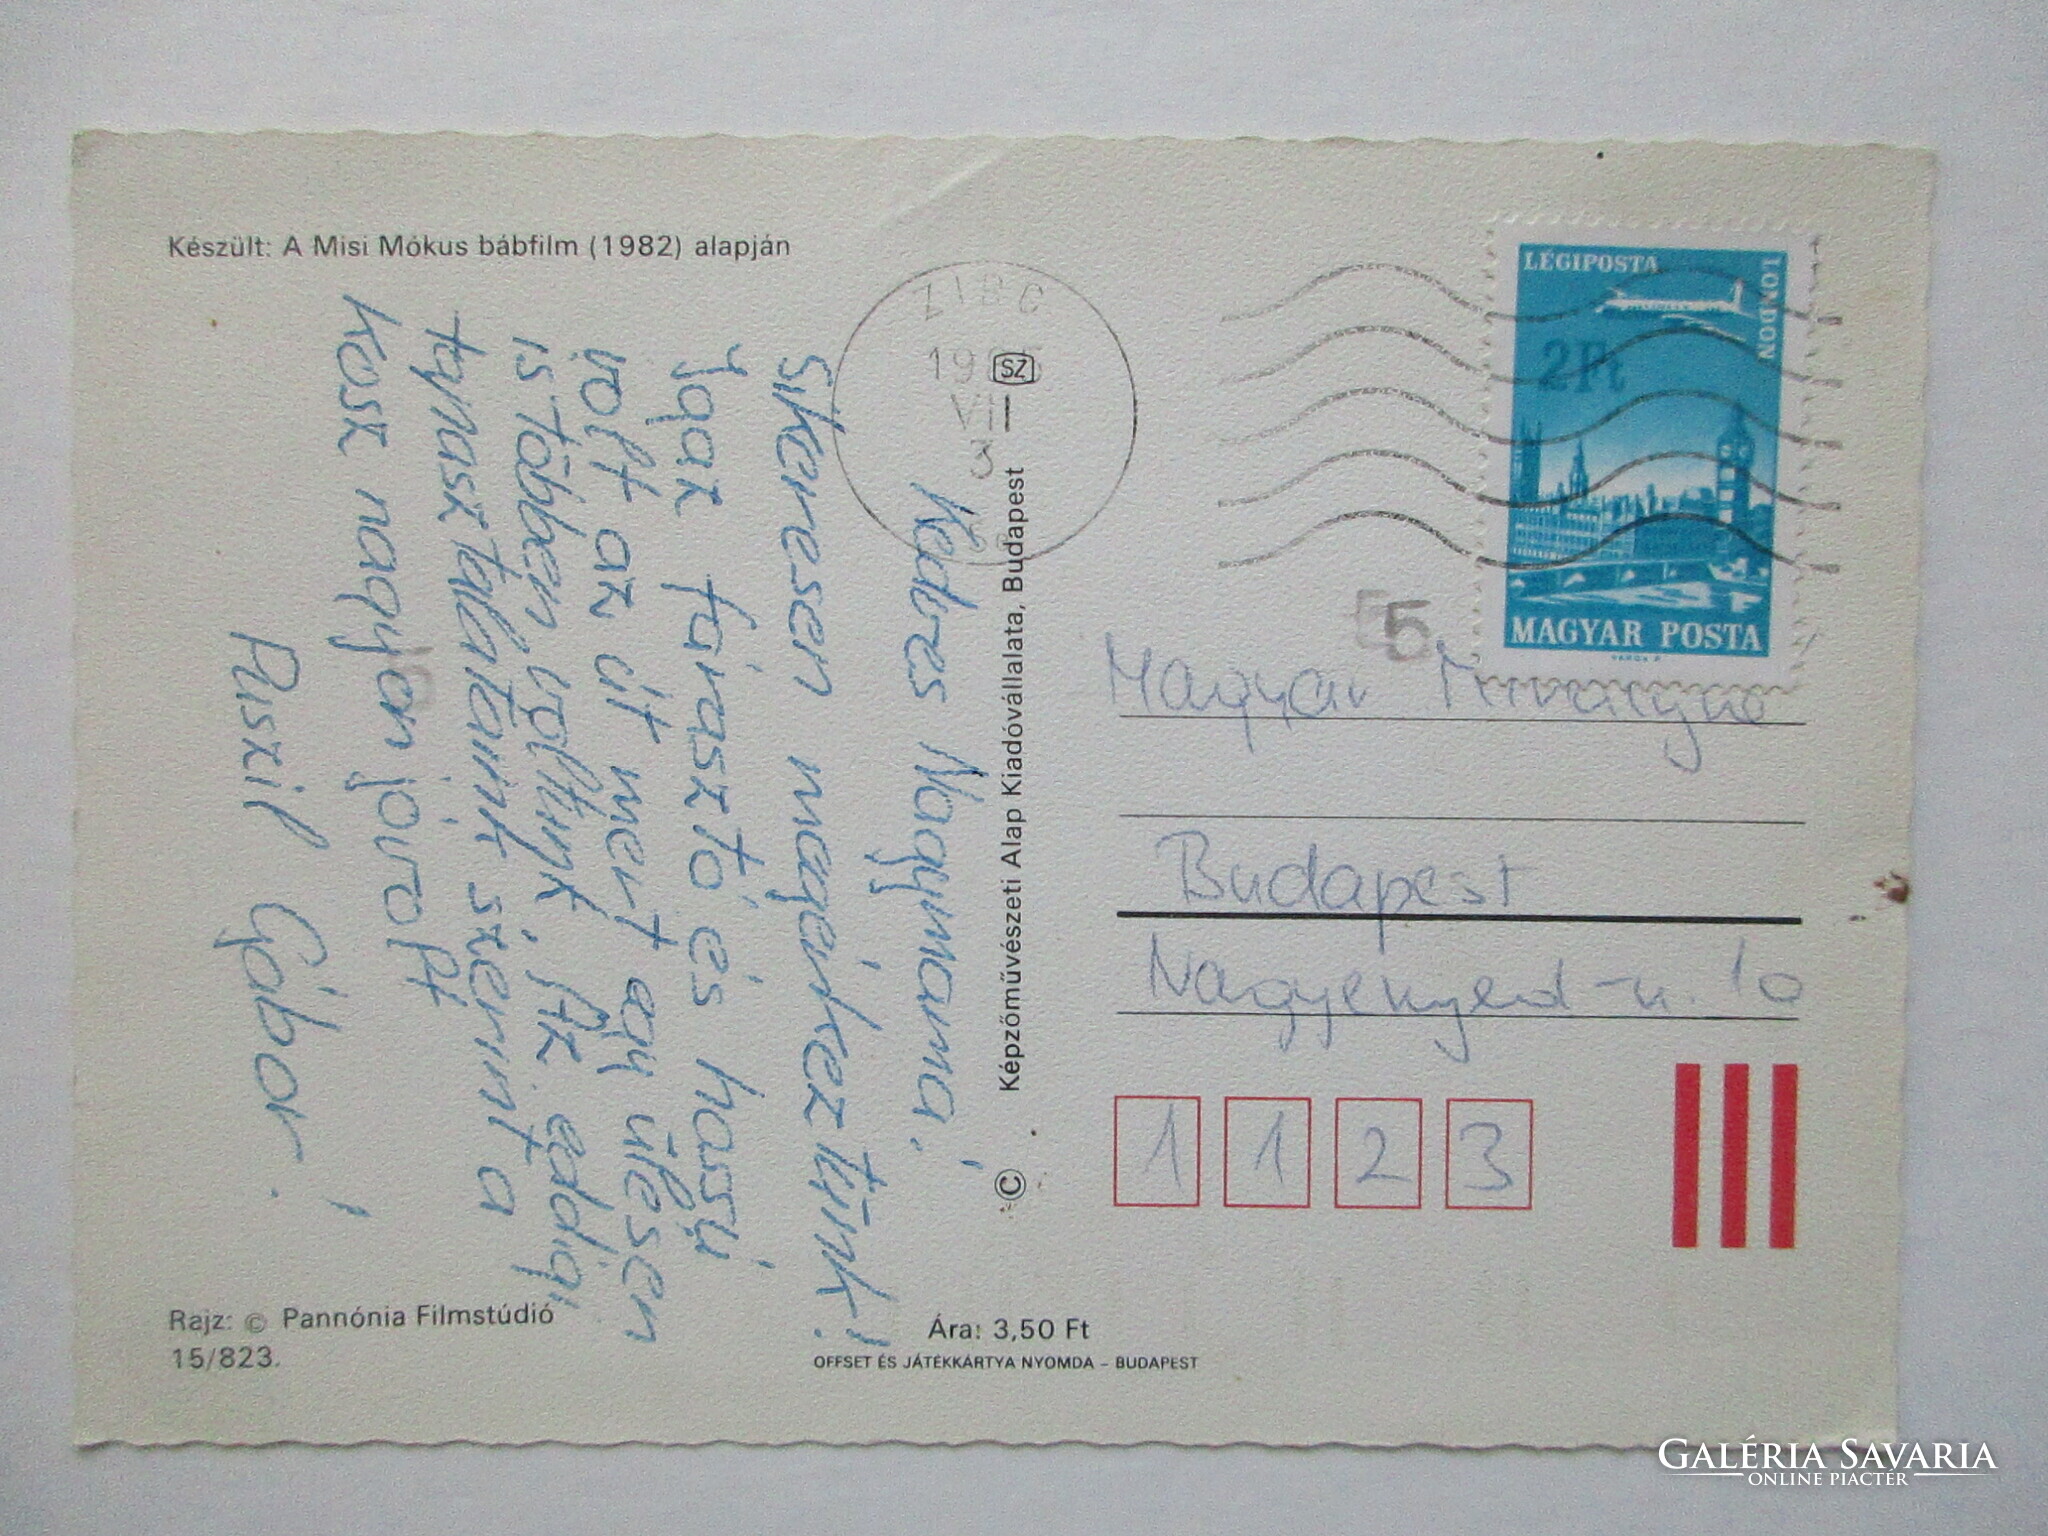 Készült: A Misi Mókus bábfilm (1982) alapján
Kedves Nagymama,
Sikeresen megérkeztünk!
Igaz fárasztó és hosszú
volt az út mert egy ülésen
is többen voltunk, Az eddigi
tapasztalataink szerint a
kosz nagyon jó volt!
Puszil Gábor.
Rajz: © Pannónia Filmstúdió
15/823.
1985
VII
3
SZ
© Képzőművészeti Alap Kiadóvállalata, Budapest
Ára: 3,50 Ft
OFFSET ÉS JÁTÉKKÁRTYA NYOMDA – BUDAPEST
LÉGIPOSTA
LONDON
2Ft
MAGYAR POSTA
55
Magyar
Budapest
Nagyenyed-u. 10
1 1 2 3
GALÉRIA SAVARIA
ONLINE PIACTÉR